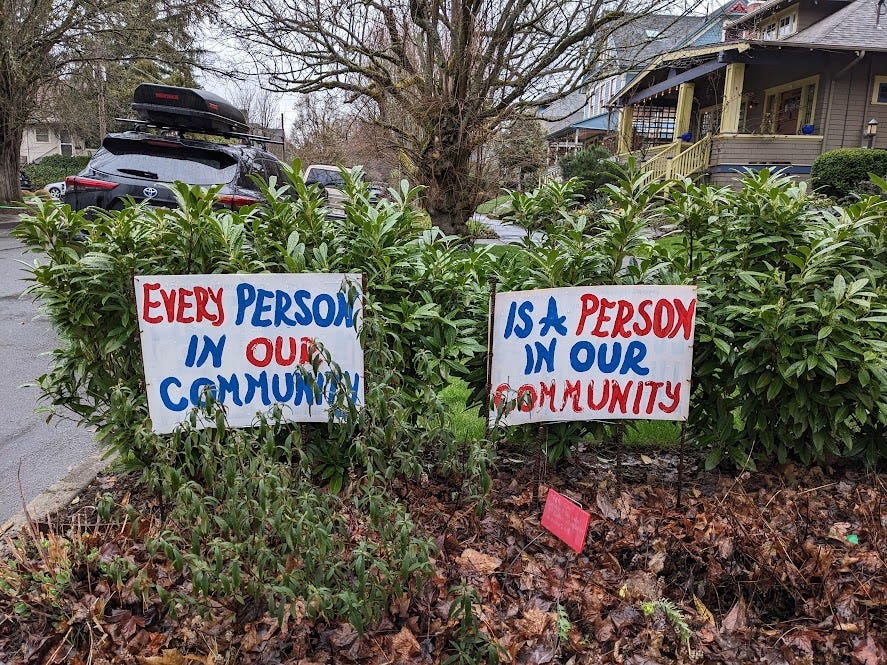 EVERY PERSON
IN OUR
COMMUNITY
IS A PERSON
IN OUR
COMMUNITY